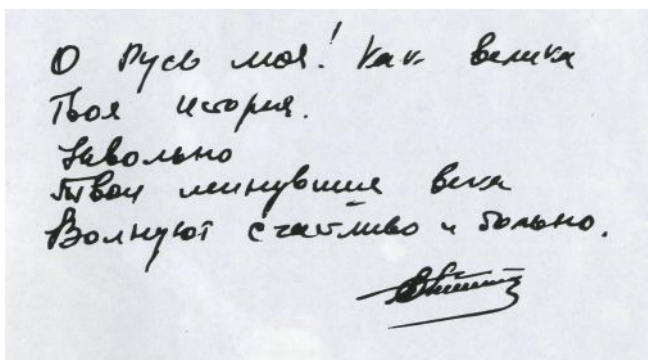 О Русь моя! Как велика
Твоя история.
Невольно
Твои минувшие века
Волнуют счастливо и больно.